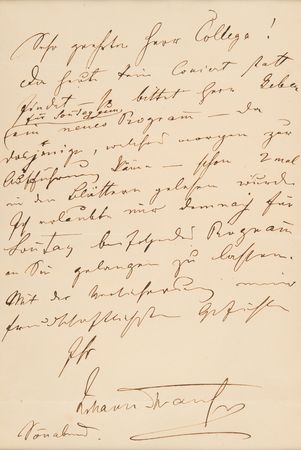 Sehr geehrter Herr College!
Da heute kein Concert statt
findet – so bittet Herr
für Sonntag
ein neues Programm – da
dasjenige, welches morgen zur
Aufführung käme – schon 2 mal
in den Blättern gelesen wurde.
Ich erlaube mir demnach für
Sonntag beifolgendes Programm
an Sie gelangen zu lassen.
Mit der Versicherung meiner
freundschaftlichsten Gefühle
Ihr
Johann Strauss
Sonnabend.